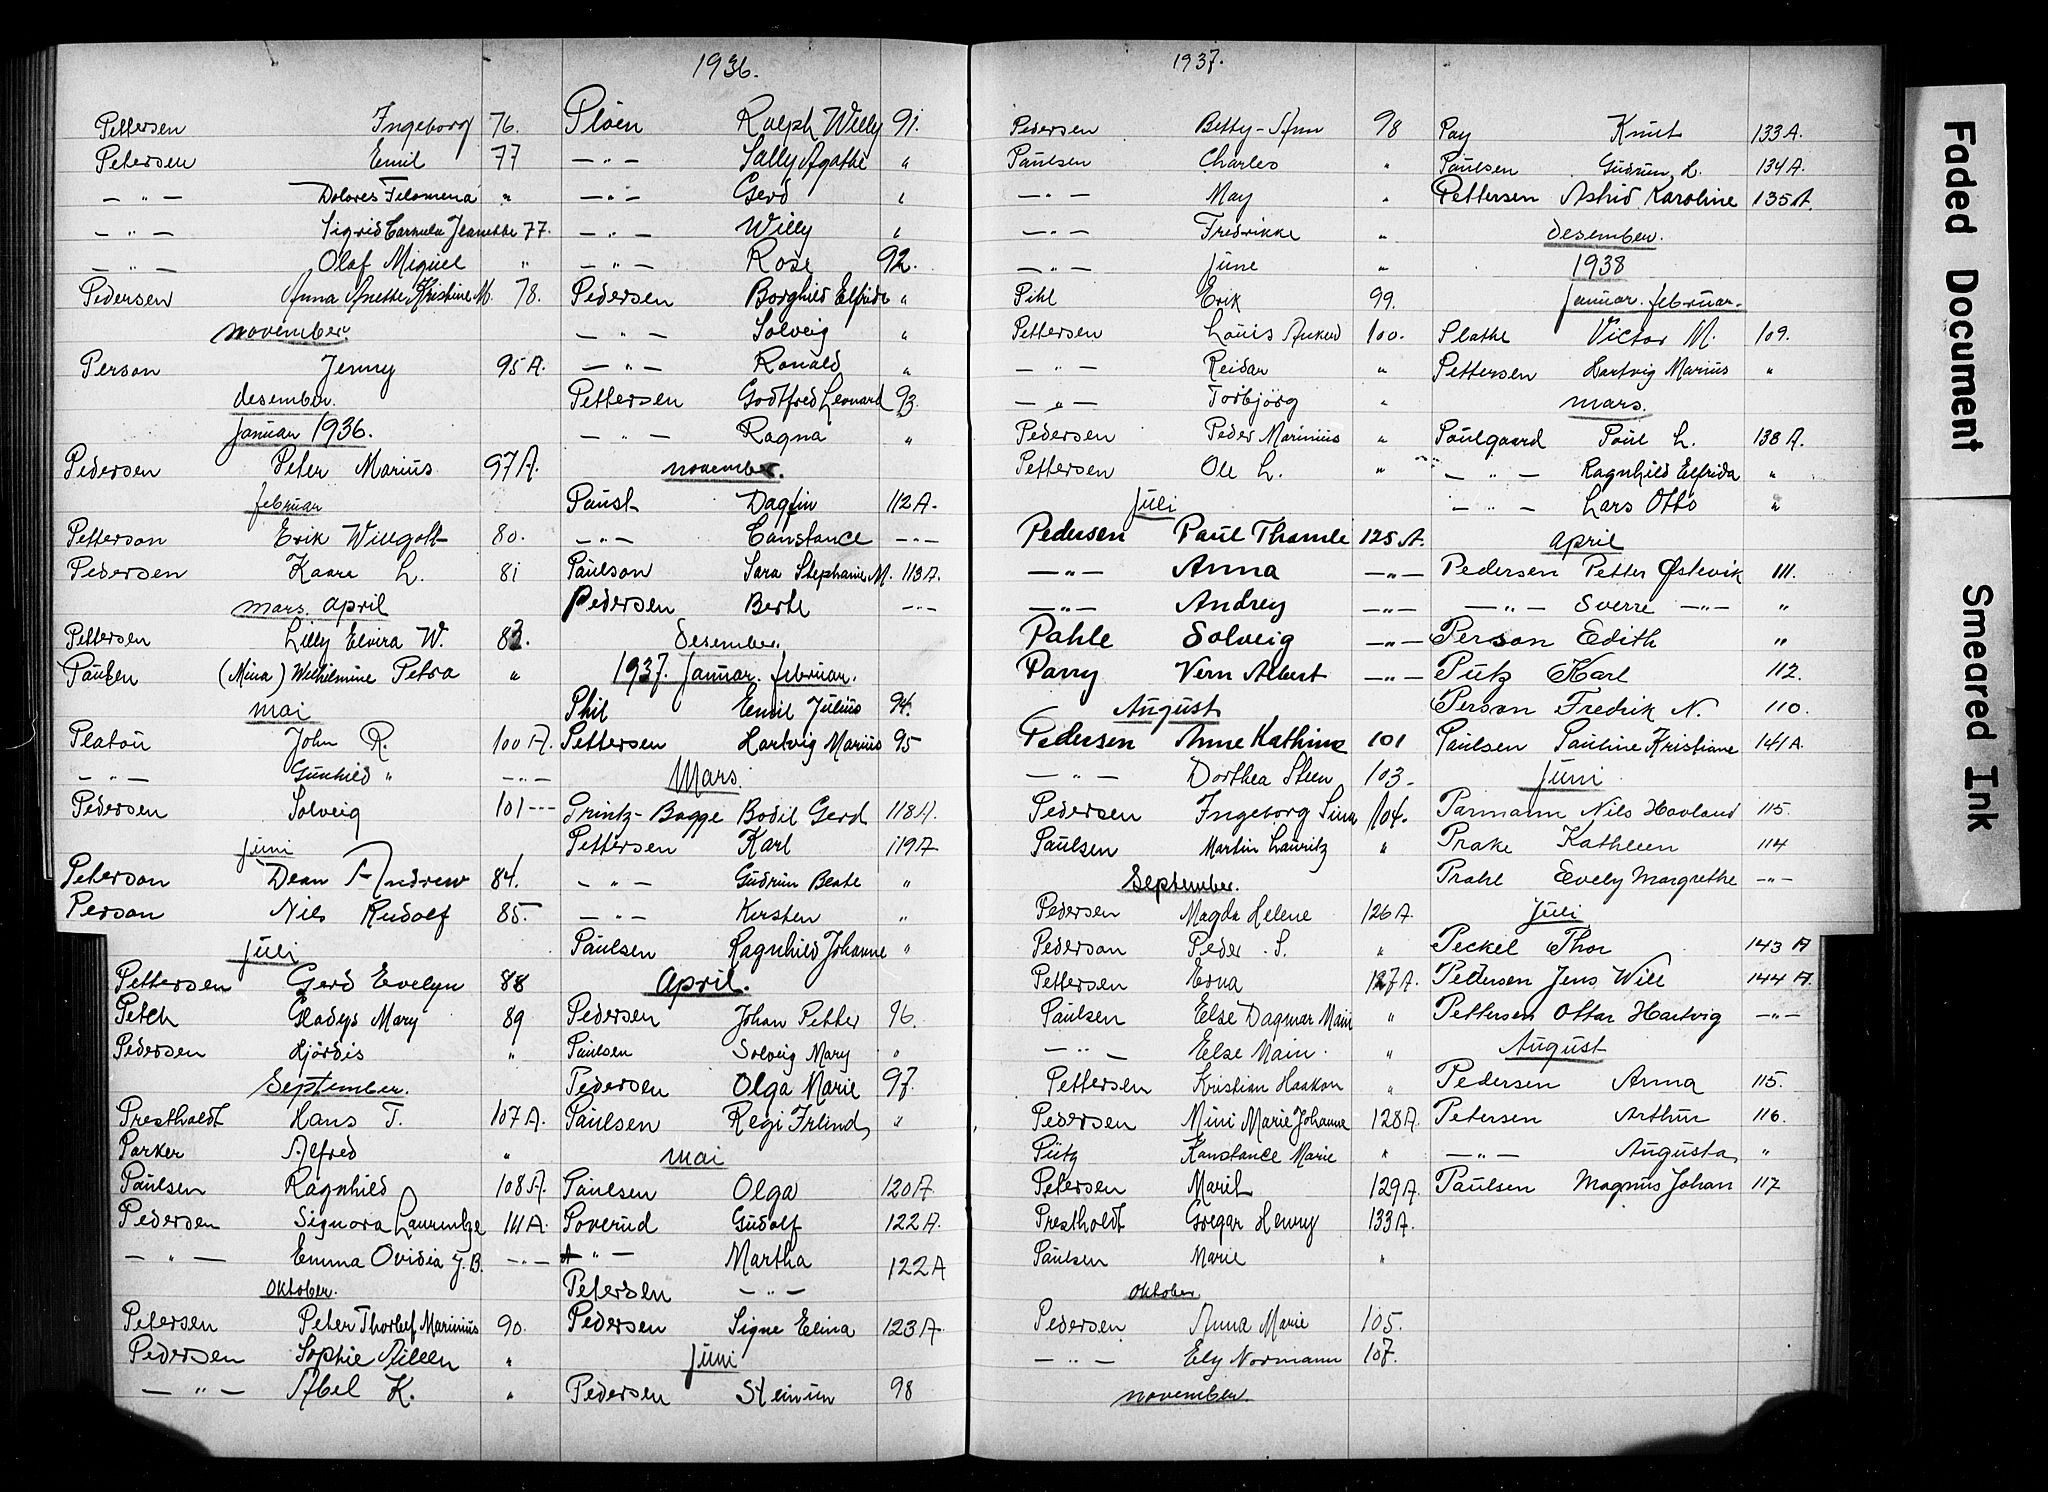 1936.
Pettersen Ingeborg 76.
Petersen Emil 77
— „ — Dolores Filomena „
— „ — Sigrid Carmela Jeanette 77.
— „ — Olaf Miguel „
Pedersen Anna Anette Kristine M. 78.
november.
Person Jenny 95 A.
desember.
Januar 1936.
Pedersen Peter Marius 97 A.
februar
Petterson Erik Willgott 80.
Pedersen Kaare L. 81
mars. April
Pettersen Lilly Elvira W. 82.
Paulsen (Mina) Wilhelmine Petra „
mai
Platou John R. 100 A.
— „ — Gunhild „ — „ —
Pedersen Solveig 101 ---
juni
Peterson Dean Andrew 84.
Person Nils Rudolf 85.
Juli
Pettersen Gerd Evelyn 88
Petch Gladys Mary 89
Pedersen Hjördis „
September.
Prestholdt Hans T. 107 A.
Parker Alfred „
Paulsen Ragnhild 108 A.
Pedersen Signora Laurentze 111 A.
— „ — Emma Ovidia J. B. — „ —
Oktober.
Petersen Peter Thorlef Marinius 90.
Pedersen Sophie Aileen „
— „ — Abel K. „
Ploen Ralph Willy 91.
— „ — Sally Agathe „
— „ — Gerd „
— „ — Willy „
— „ — Rose 92.
Pedersen Borghild Elfride „
— „ — Solveig „
— „ — Ronald „
Pettersen Godtfred Leonard 93.
— „ — Ragna „
november.
Paust Dagfin 112 A.
— „ — Constance — „ —
Paulson Sara Stephanie M. 113 A.
Pedersen Berte — „ —
Desember.
1937. Januar. februar.
Phil Emil Julius 94.
Pettersen Hartvig Marius 95
Mars.
Printz-Bagge Bodil Gerd 118 A.
Pettersen Karl 119 A
— „ — Gudrun Beate „
— „ — Kirsten „
Paulsen Ragnhild Johanne „
April.
Pedersen Johan Petter 96.
Paulsen Solveig Mary „
Pedersen Olga Marie 97.
Paulsen Regi Irlind „
mai
Paulsen Olga 120 A
Poverud Gudolf 122 A.
— „ — Martha 122 A
Petersen — „ —
Pedersen Signe Elina 123 A.
Juni
Pedersen Steinun 98
1937.
Pedersen Betty-Ann 98
Paulsen Charles „
— „ — May „
— „ — Fredrikke „
— „ — June „
Pihl Erik 99.
Pettersen Louis Anker 100.
— „ — Reidar „
— „ — Torbjörg „
Pedersen Peder Marinius „
Pettersen Ole L. „
Juli
Pedersen Paul Thamle 125 A.
— „ — Anna — „ —
— „ — Andrey — „ —
Pahle Solveig — „ —
Parry Vern Albert — „ —
August
Pedersen Anne Kathine 101
— „ — Dorthea Steen 103.
Pedersen Ingeborg Sina 104.
Paulsen Martin Lauritz „
September.
Pedersen Magda Helene 126 A.
Pederson Peder S. „
Pettersen Erna 127 A.
Paulsen Else Dagmar Main „
— „ — Else Main. „
Pettersen Kristian Haakon „
Pedersen Mini Marie Johanne 128 A.
Pütz Konstance Marie „
Petersen Marit 129 A.
Prestholdt Gregar Henry 133 A.
Paulsen Marie „
Oktober
Pedersen Anna Marie 105.
— „ — Ely Normann 107.
november.
Pay Knut 133 A.
Paulsen Gudrun L. 134 A.
Pettersen Astrid Karoline 135 A.
desember.
1938
Januar. februar.
Plathe Victor M. 109.
Pettersen Hartvig Marius „
mars.
Poulgaard Paul L. 138 A.
— „ — Ragnhild Elfrida „
— „ — Lars Otto „
April
Pedersen Petter Østevik 111.
— „ — Sverre — „ — „
Person Edith „
Putz Karl 112.
Person Fredrik N. 110.
Paulsen Pauline Kristiane 141 A.
Juni
Parmann Nils Hovland 115.
Prake Kathleen 114
Prahl Evely Margrethe — „ —
Juli
Peckel Thor 143 A
Pedersen Jens Will 144 A.
Pettersen Ottar Hartvig — „ —
August
Pedersen Anna 115.
Petersen Arthur 116.
— „ — Augusta „
Paulsen Magnus Johan 117
Faded Document
Smeared Ink